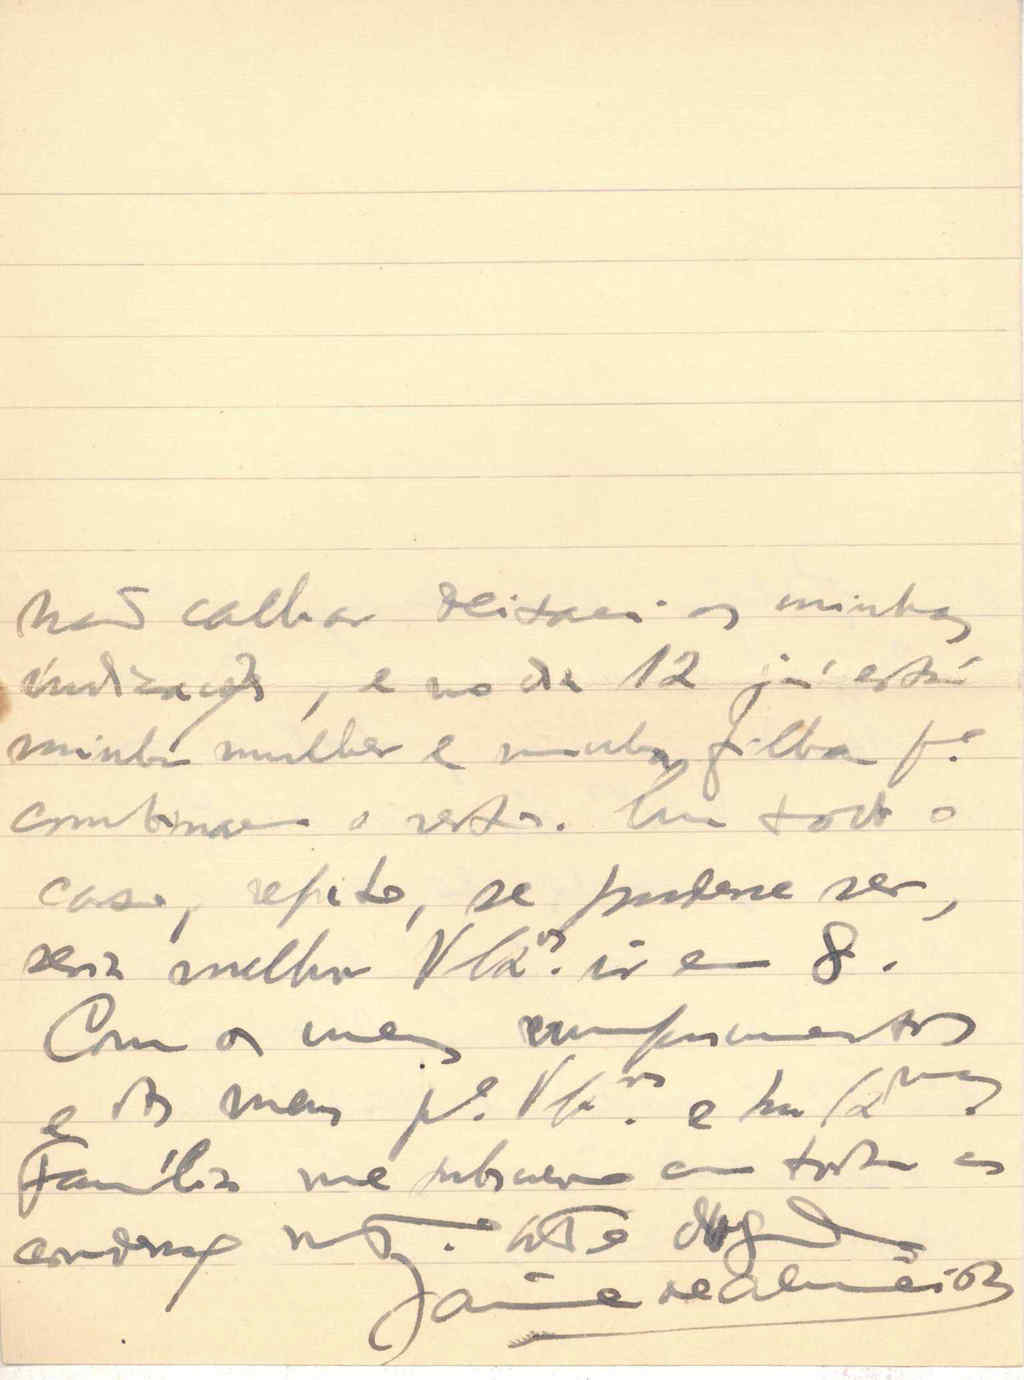 não calhar deixarei as minhas
indicações, e no dia 12 já está
minha mulher e minha filha pª
combinarem o resto. Em todo o
caso, repito, se pudesse ser,
seria melhor V. Exªs. ir em 8.
Com os meus cumprimentos
e dos meus pª. V. Exªs. e Exmas.
Família me subscrevo com toda a
consideração mtº. Attº e Obgdo
Jaime de Almeida